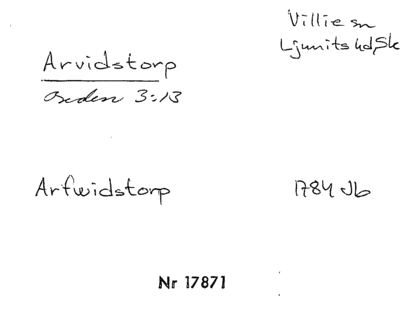 Villie sn
Ljunits hd, Sk
Arvidstorp
Boken 3:13
Arfwidstorp
1784 Jb
Nr 17871